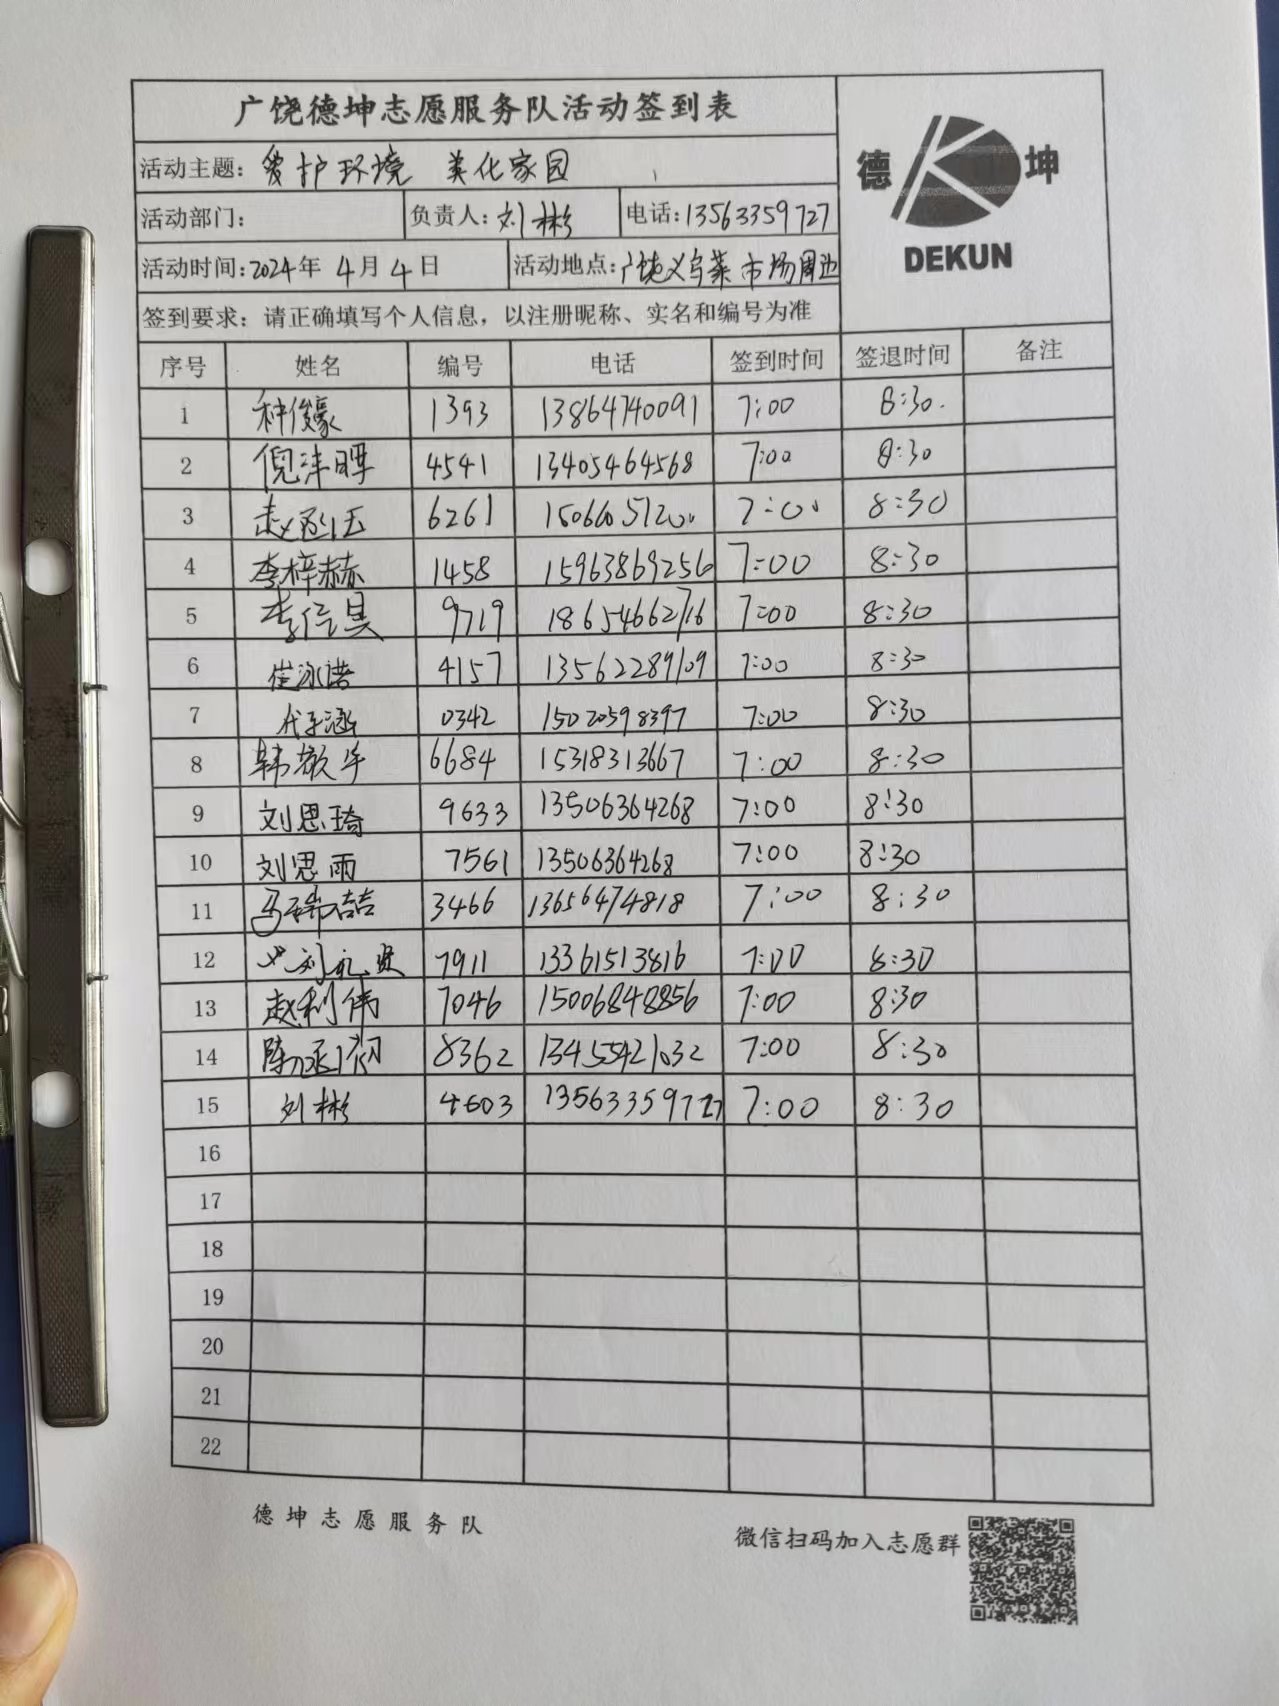 广饶德坤志愿服务队活动签到表
德 坤
DEKUN
活动主题：爱护环境 美化家园
活动部门： 负责人：刘彬 电话：13563359727
活动时间：2024年 4月4日 活动地点：广饶义乌菜市场周边
签到要求：请正确填写个人信息，以注册昵称、实名和编号为准
序号 姓名 编号 电话 签到时间 签退时间 备注
1 种俊豪 1393 13864740091 7:00 8:30.
2 倪沣晖 4541 13405464568 7:00 8:30
3 6261 7:00 8:30
4 李梓赫 1458 15963869256 7:00 8:30
5 李信昊 9719 18654662716 7:00 8:30
6 崔泳诺 4157 13562289109 7:00 8:30
7 代子涵 0342 15020598397 7:00 8:30
8 韩敬华 6684 15318313667 7:00 8:30
9 刘思琦 9633 13506364268 7:00 8:30
10 刘思雨 7561 13506364268 7:00 8:30
11 3466 13656474818 7:00 8:30
12 7911 13361513816 7:00 8:30
13 赵利伟 7046 15006848856 7:00 8:30
14 8362 13455421032 7:00 8:30
15 刘彬 4603 13563359727 7:00 8:30
16
17
18
19
20
21
22
德坤志愿服务队
微信扫码加入志愿群